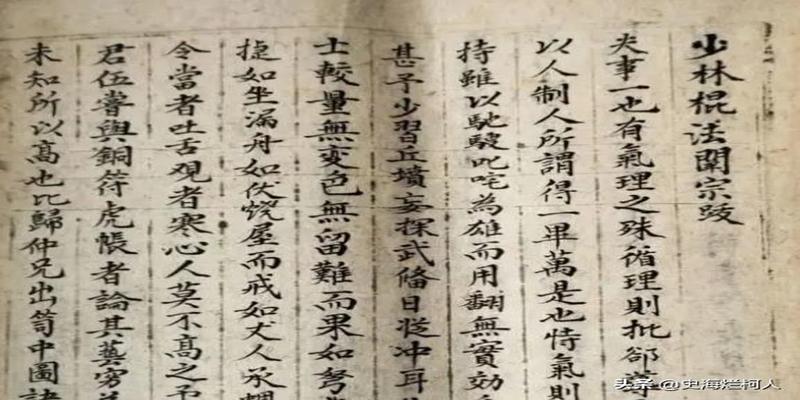 少林棍法闡宗跋
夫事一也有氣理之殊循理則批郤導
以人制人所謂得一畢萬是也恃氣則
持雖以馳驟叱咤為雄而用翻無實効
甚予少習丘墳妄探武備日從冲耳
士較量無変色無留難而果如弩
捷如坐漏舟如伏燒屋而戒如犬人承蜩
令當者吐舌观者寒心人莫不高之予
君伍嘗與銅符虎帳者論其藝穷
未知所以高也比歸仲兄出笥中圖訣
头条 @史海烂柯人